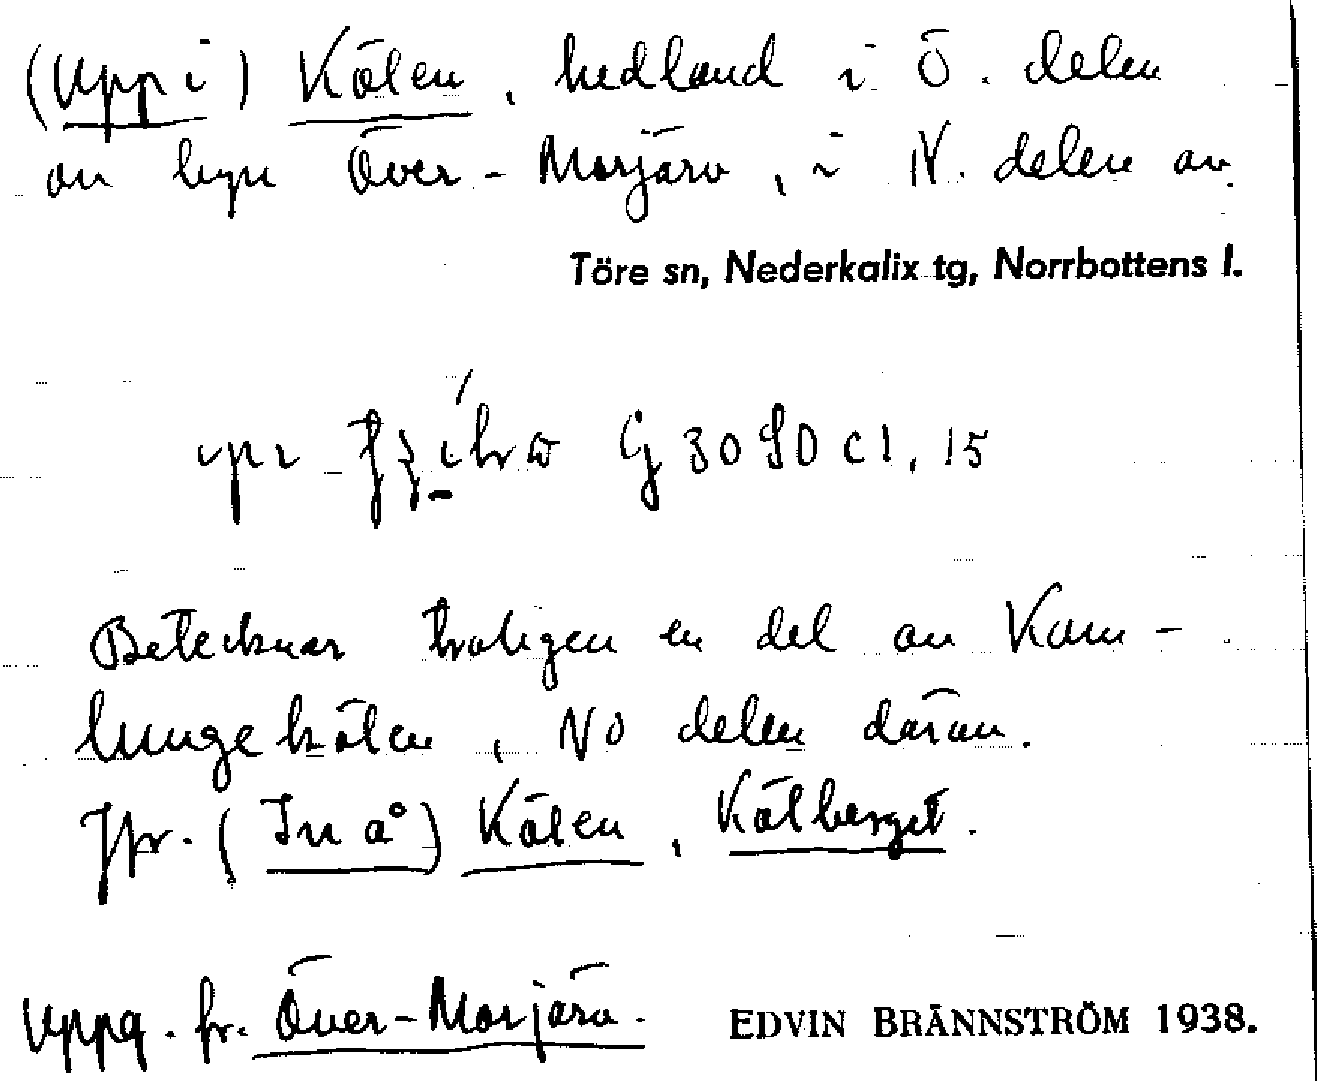 (Uppi) Kölen, hedland i Ö. delen
av byn Över-Morjärv, i N. delen av
Töre sn, Nederkalix tg, Norrbottens l.
G 3090 c1, 15
Betecknar troligen en del av Kam-
lungekölen, NO delen därav.
Jfr. (In å) Kölen, Kölberget.
Uppg. fr. Över-Morjärv. EDVIN BRÄNNSTRÖM 1938.